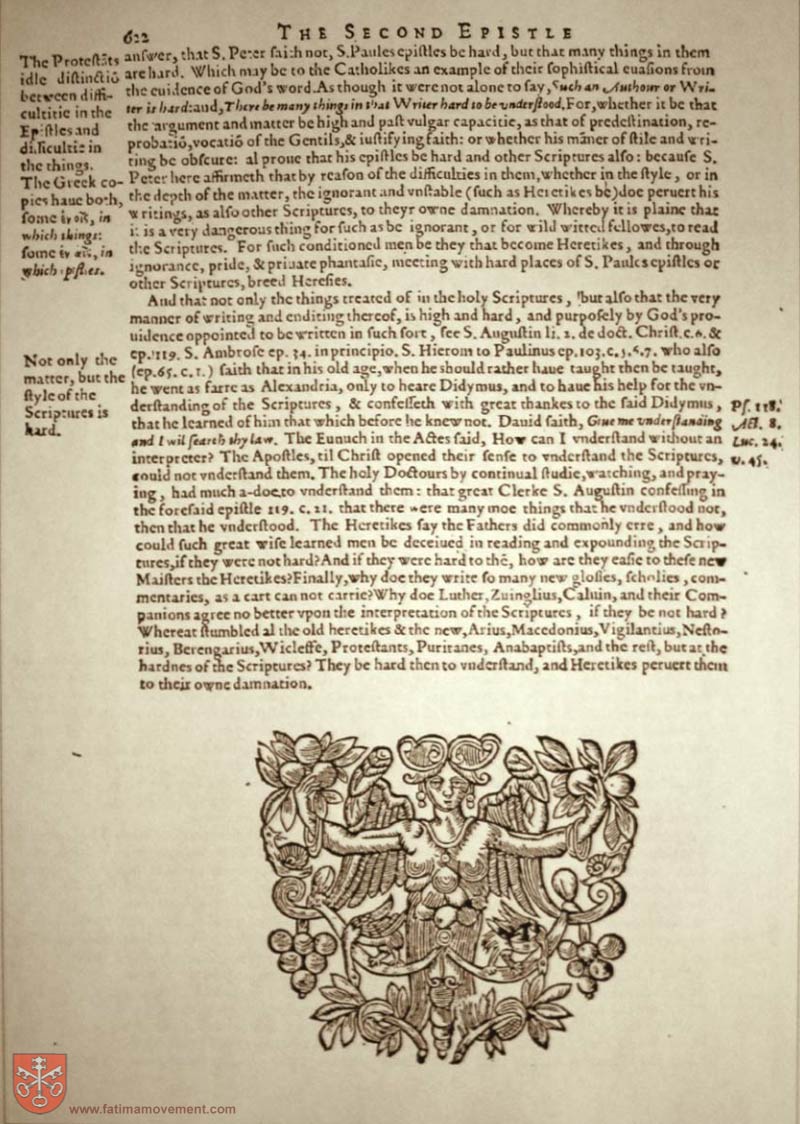 622
THE SECOND EPISTLE
The Protestāts
idle distinctiō
between diffi-
cultitie in the
Epistles and
difficultie in
the things.
The Greek co-
pies haue both,
some ἐν οἷς, in
which things:
some ἐν αἷς, in
which epistles.
answer, that S. Peter saith not, S. Paules epistles be hard, but that many things in them
are hard. Which may be to the Catholikes an example of their sophistical euasions from
the euidence of God's word. As though it were not alone to say, Such an Authour or Wri-
ter is hard: and, There be many things in that Writer hard to be vnderstood. For, whether it be that
the argument and matter be high and past vulgar capacitie, as that of predestination, re-
probatiō, vocatiō of the Gentils, & iustifying faith: or whether his māner of stile and wri-
ting be obscure: al proue that his epistles be hard and other Scriptures also: because S.
Peter here affirmeth that by reason of the difficulties in them, whether in the style, or in
the depth of the matter, the ignorant and vnstable (such as Heretikes be) doe peruert his
writings, as also other Scriptures, to theyr owne damnation. Whereby it is plaine that
it is a very dangerous thing for such as be ignorant, or for wild witted fellowes, to read
the Scriptures. For such conditioned men be they that become Heretikes, and through
ignorance, pride, & priuate phantasie, meeting with hard places of S. Paules epistles or
other Scriptures, breed Heresies.
And that not only the things treated of in the holy Scriptures, but also that the very
manner of writing and enditing thereof, is high and hard, and purposely by God's pro-
uidence oppointed to be written in such sort, see S. Augustin li. 2. de doct. Christ. c. 6. &
Not only the
matter, but the
style of the
Scriptures is
hard.
ep. 119. S. Ambrose ep. 34. in principio. S. Hierom to Paulinus ep. 103. c. 5. 6. 7. who also
(ep. 65. c. 1.) saith that in his old age, when he should rather haue taught then be taught,
he went as farre as Alexandria, only to heare Didymus, and to haue his help for the vn-
derstanding of the Scriptures, & confesseth with great thankes to the said Didymus,
that he learned of him that which before he knew not. Dauid saith, Giue me vnderstanding
and I wil search thy law. The Eunuch in the Actes said, How can I vnderstand without an
interpreter? The Apostles, til Christ opened their sense to vnderstand the Scriptures,
could not vnderstand them. The holy Doctours by continual studie, watching, and pray-
ing, had much a-doe to vnderstand them: that great Clerke S. Augustin confessing in
the foresaid epistle 119. c. 21. that there were many moe things that he vnderstood not,
then that he vnderstood. The Heretikes say the Fathers did commonly erre, and how
could such great wise learned men be deceiued in reading and expounding the Scrip-
tures, if they were not hard? And if they were hard to thē, how are they easie to these new
Maisters the Heretikes? Finally, why doe they write so many new glosses, scholies, com-
mentaries, as a cart can not carrie? Why doe Luther, Zuinglius, Caluin, and their Com-
panions agree no better vpon the interpretation of the Scriptures, if they be not hard?
Whereat stumbled al the old heretikes & the new, Arius, Macedonius, Vigilantius, Nesto-
rius, Berengarius, Wicleffe, Protestants, Puritanes, Anabaptists, and the rest, but at the
hardnes of the Scriptures? They be hard then to vnderstand, and Heretikes peruert them
to their owne damnation.
Ps. 118.
Act. 8.
Luc. 24.
v. 45.
www.fatimamovement.com